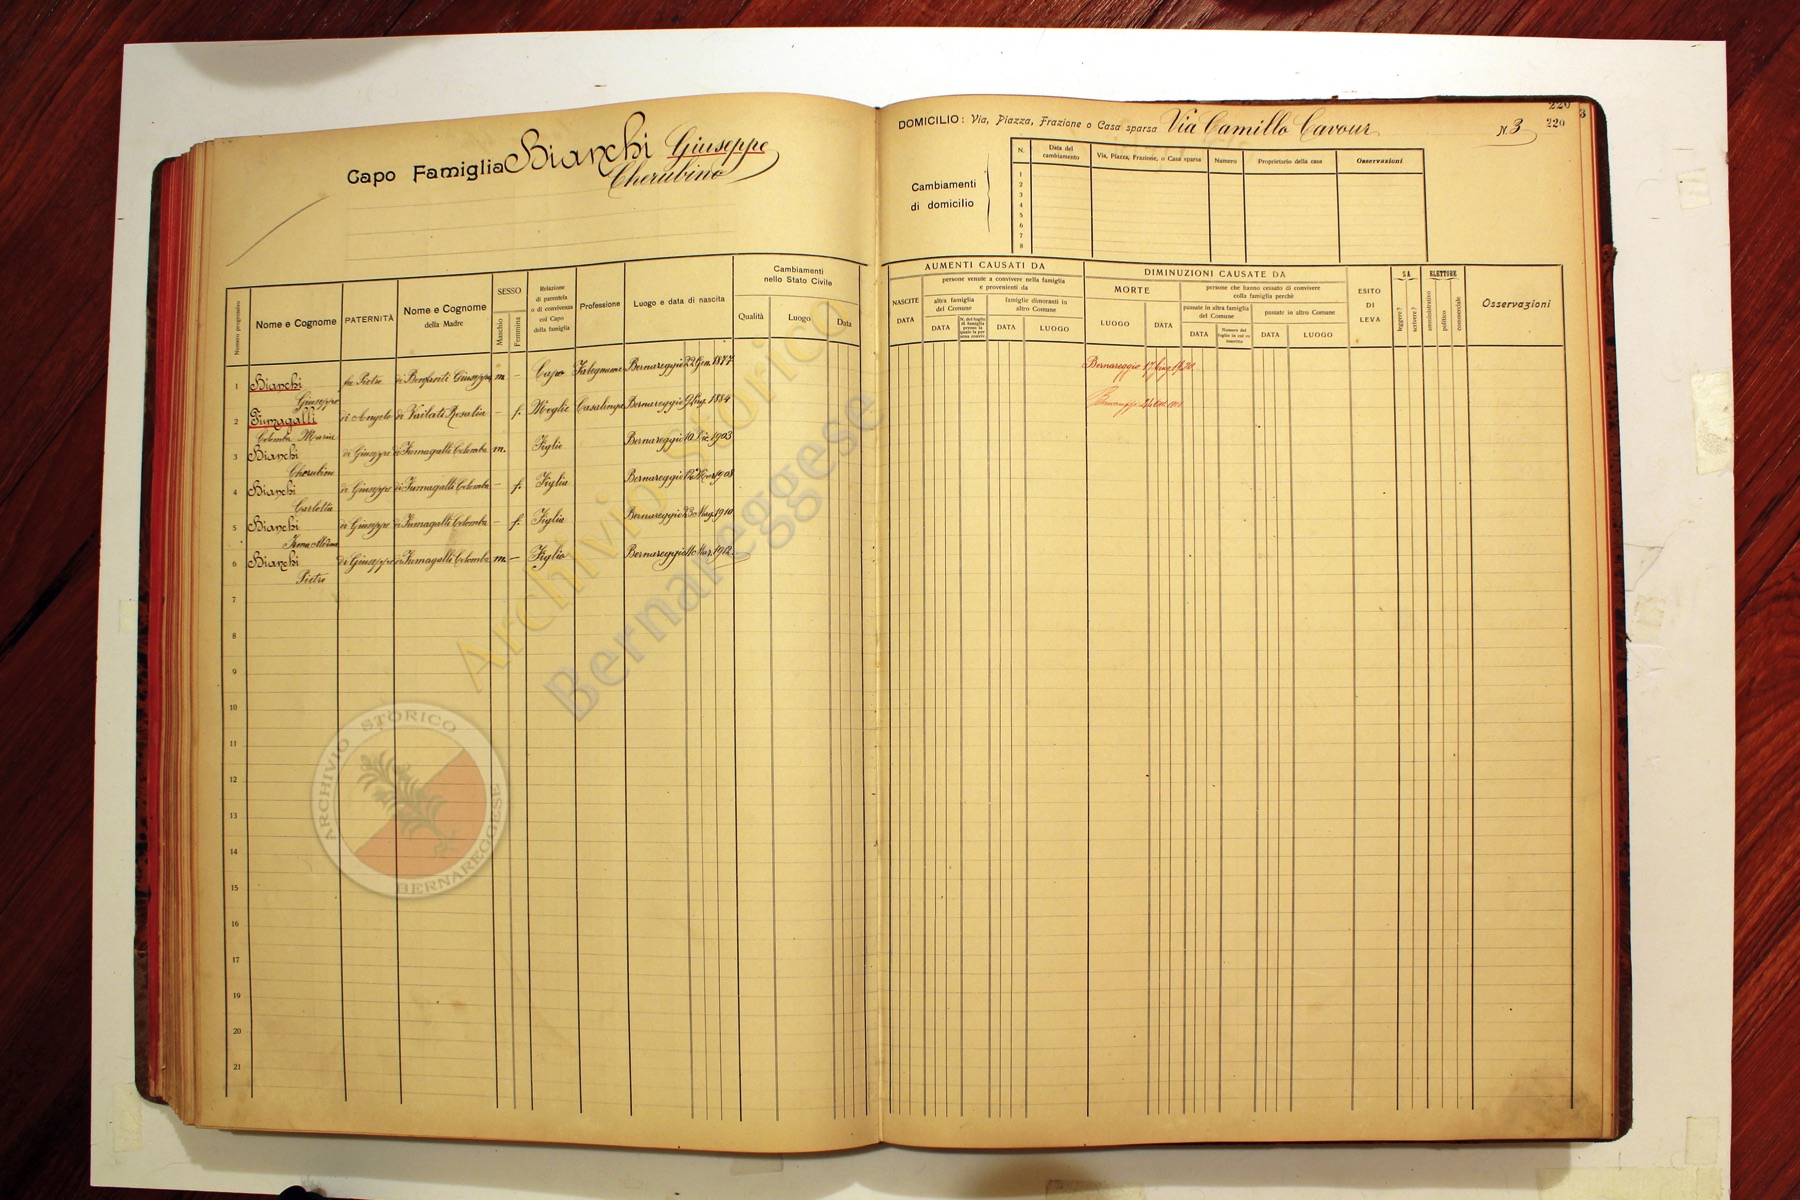 Capo Famiglia Bianchi Giuseppe
Cherubino
DOMICILIO: Via, Piazza, Frazione o Casa sparsa Via Camillo Cavour N. 3
220
220
3
Cambiamenti
di domicilio
N. Data del cambiamento Via, Piazza, Frazione, o Casa sparsa Numero Proprietario della casa Osservazioni
1
2
3
4
5
6
7
8
Numero progressivo
Nome e Cognome
PATERNITÀ
Nome e Cognome
della Madre
SESSO
Maschio
Femmina
Relazione
di parentela
o di convivenza
col Capo
della famiglia
Professione
Luogo e data di nascita
Cambiamenti
nello Stato Civile
Qualità Luogo Data
AUMENTI CAUSATI DA
NASCITE
DATA
persone venute a convivere nella famiglia
e provenienti da
altra famiglia
del Comune
DATA
N. del foglio
di famiglia
presso la
quale la per
sona convive
famiglie dimoranti in
altro Comune
DATA LUOGO
DIMINUZIONI CAUSATE DA
MORTE
LUOGO DATA
persone che hanno cessato di convivere
colla famiglia perchè
passate in altra famiglia
del Comune
DATA
Numero del
foglio in cui so
inscritto
passate in altro Comune
DATA LUOGO
ESITO
DI
LEVA
SA
leggere?
scrivere?
ELETTORE
amministrativo
politico
commerciale
Osservazioni
1 Bianchi fu Pietro di Bonfanti Giuseppa m. – Capo Falegname Bernareggio 22 Gen. 1877 Bernareggio
Giuseppe
2 Fumagalli di Angelo di Varlati Rosalia – f. Moglie Casalinga Bernareggio 9 1884
Colomba Maria
3 Bianchi di Giuseppe di Fumagalli Colomba m. Figlio Bernareggio 10 Dic. 1903
Cherubino
4 Bianchi di Giuseppe di Fumagalli Colomba – f. Figlia Bernareggio 1908
Carlotta
5 Bianchi di Giuseppe di Fumagalli Colomba – f. Figlia Bernareggio 23 Mag. 1910
Irma
6 Bianchi di Giuseppe di Fumagalli Colomba m. – Figlio Bernareggio 1912
Pietro
7
8
9
10
11
12
13
14
15
16
17
19
19
20
21
Archivio Storico
Bernareggese
ARCHIVIO STORICO
BERNAREGGESE